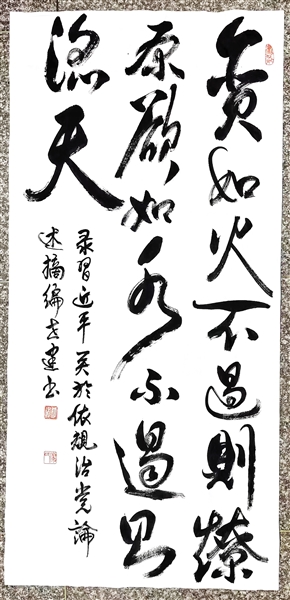 贪如火不遏则燎
原欲如水不遏则
滔天
录习近平关于依规治党论
述摘编 志建书